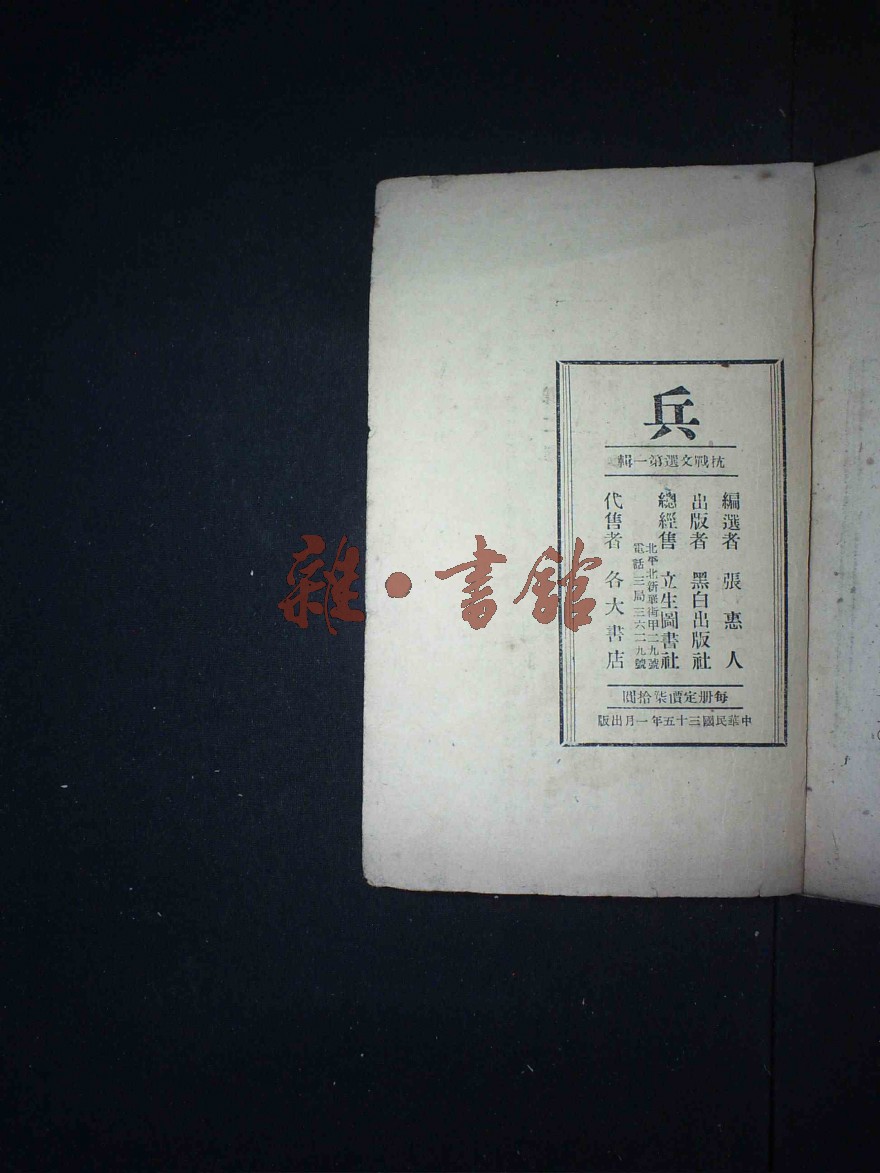 兵
抗戰文選第一輯
編選者 張惠人
出版者 黑白出版社
總經售 立生圖書社
北平北新華街甲二九號
電話三局三六二九號
代售者 各大書店
每册定價柒拾圓
中華民國三十五年一月出版
雜·書館